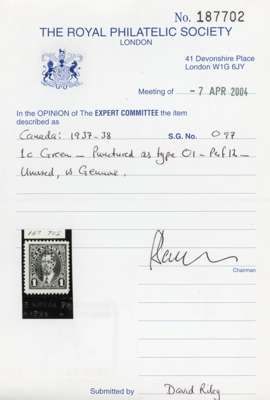 No. 187702
THE ROYAL PHILATELIC SOCIETY
LONDON
41 Devonshire Place
London W1G 6JY
Meeting of - 7 APR 2004
In the OPINION of The EXPERT COMMITTEE the item
described as
Canada: 1937-38 S.G. No. O97
1c Green - Punctured as type O1 - Perf 12 -
Unused, is Genuine.
187 702
1 1
Chairman
Submitted by David Riley